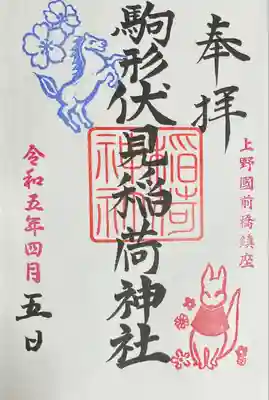 奉拝
上野國前橋鎮座
駒形伏見稲荷神社
稲荷
神社
令和五年四月五日